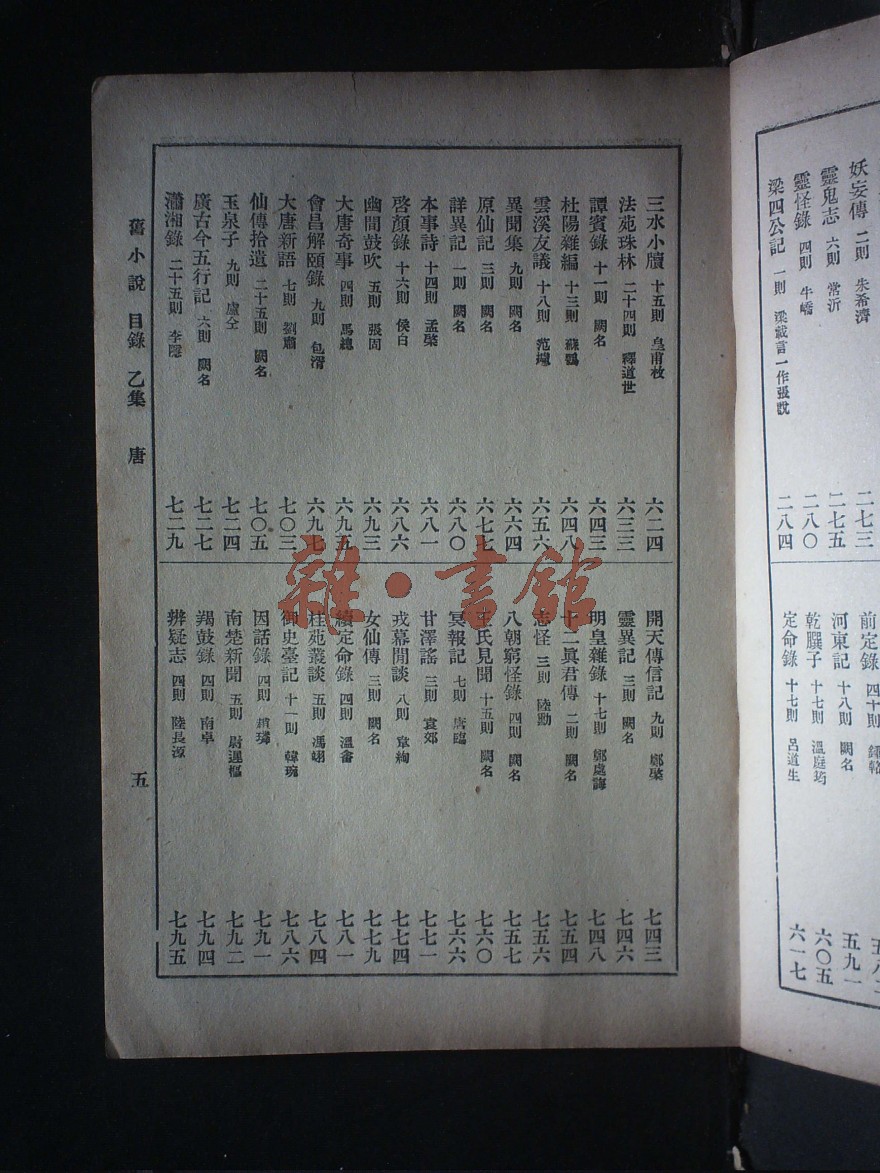 妖妄傳 二則 朱希濟 二七三
靈鬼志 六則 常沂 二七五
靈怪錄 四則 牛嶠 二八〇
梁四公記 一則 梁載言一作張説 二八四
前定錄 四十則
河東記 十八則 闕名 五九一
乾𦠆子 十七則 溫庭筠 六〇五
定命錄 十七則 呂道生 六一七
三水小牘 十五則 皇甫枚 六二四
法苑珠林 二十四則 釋道世 六三三
譚賓錄 十一則 闕名 六四三
杜陽雜編 十三則 蘇鶚 六四八
雲溪友議 十八則 范攄 六五六
異聞集 九則 闕名 六六四
原仙記 三則 闕名 六七七
詳異記 一則 闕名 六八〇
本事詩 十四則 孟棨 六八一
啓顏錄 十六則 侯白 六八六
幽閒鼓吹 五則 張固 六九三
大唐奇事 四則 馬總 六九五
會昌解頤錄 九則 包湑 六九七
大唐新語 七則 劉肅 七〇三
仙傳拾遺 二十五則 闕名 七〇五
玉泉子 九則 盧仝 七二四
廣古今五行記 六則 闕名 七二七
瀟湘錄 二十五則 李隱 七二九
開天傳信記 九則 鄭棨 七四三
靈異記 三則 闕名 七四六
明皇雜錄 十七則 鄭處誨 七四八
十二眞君傳 二則 闕名 七五四
志怪 三則 陸勳 七五六
八朝窮怪錄 四則 闕名 七五七
王氏見聞 十五則 闕名 七六〇
冥報記 七則 唐臨 七六六
甘澤謠 三則 袁郊 七七一
戎幕閒談 八則 韋絢 七七四
女仙傳 三則 闕名 七七九
續定命錄 四則 溫畬 七八一
桂苑叢談 五則 馮翊 七八四
御史臺記 十一則 韓琬 七八六
因話錄 四則 趙璘 七九一
南楚新聞 五則 尉遲樞 七九二
羯鼓錄 四則 南卓 七九四
辨疑志 四則 陸長源 七九五
舊小說 目錄 乙集 唐 五
雜·書館